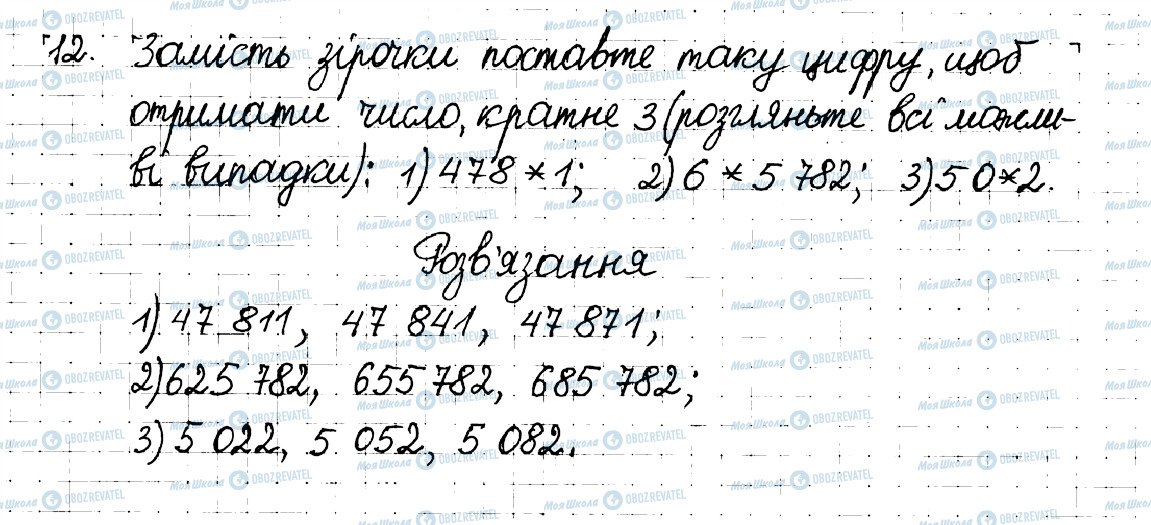 12. Замість зірочки поставте таку цифру, щоб
отримати число, кратне 3 (розгляньте всі можли-
ві випадки): 1) 478*1; 2) 6*5 782; 3) 5 0*2.
Розв'язання
1) 47 811, 47 841, 47 871;
2) 625 782, 655 782, 685 782;
3) 5 022, 5 052, 5 082.